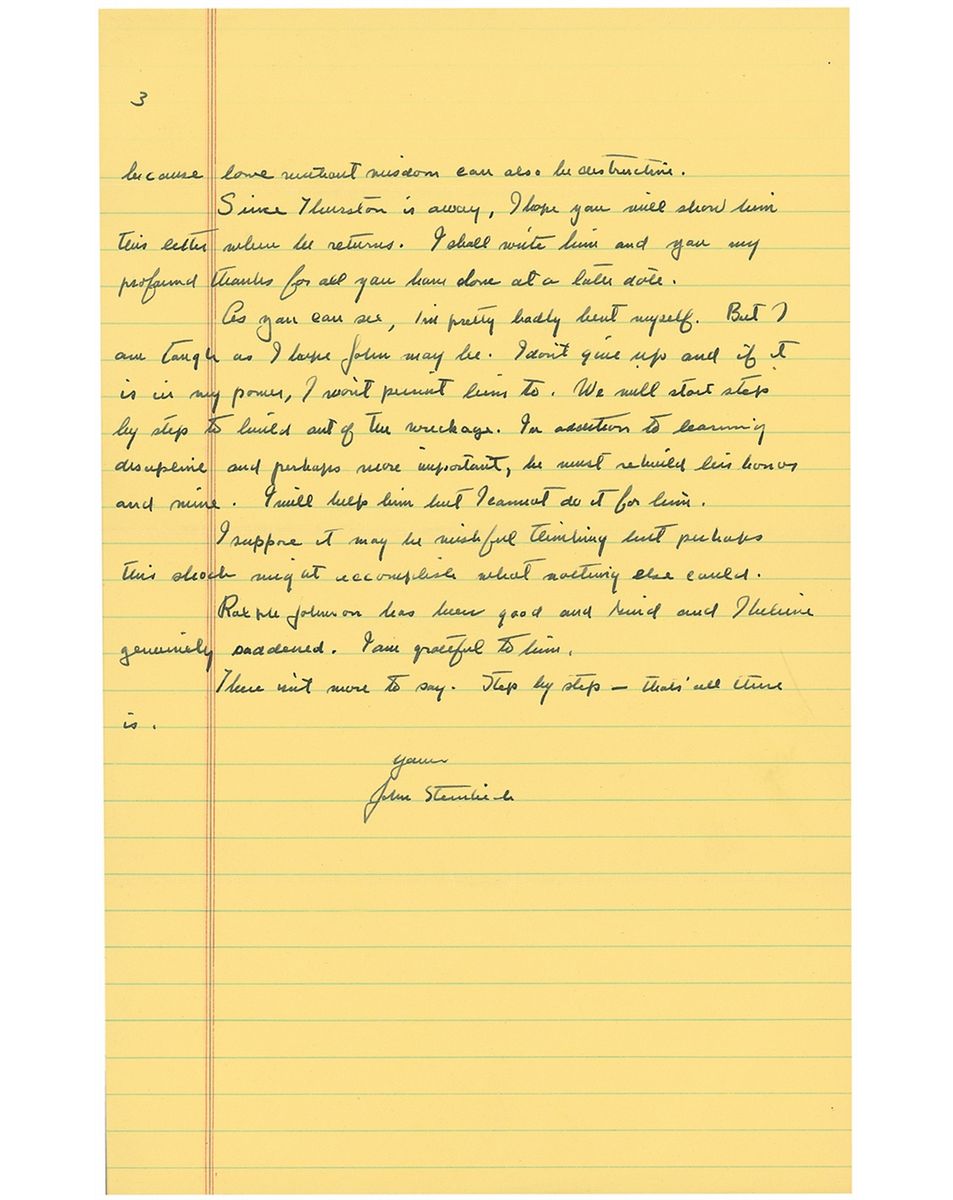 3
because love without wisdom can also be destructive.
Since Thurston is away, I hope you will show him
this letter when he returns. I shall write him and you my
profound thanks for all you have done at a later date.
As you can see, I'm pretty badly beat myself. But I
am tough as I hope John may be. I don't give up and if it
is in my power, I won't permit him to. We will start step
by step to build out of the wreckage. In addition to learning
discipline and perhaps more important, he must rebuild his honor
and mine. I will help him but I cannot do it for him.
I suppose it may be wishful thinking but perhaps
this shock might accomplish what nothing else could.
Ralph Johnson has been good and kind and I believe
genuinely saddened. I am grateful to him.
There isn't more to say. Step by step — that's all there
is.
yours
John Steinbeck